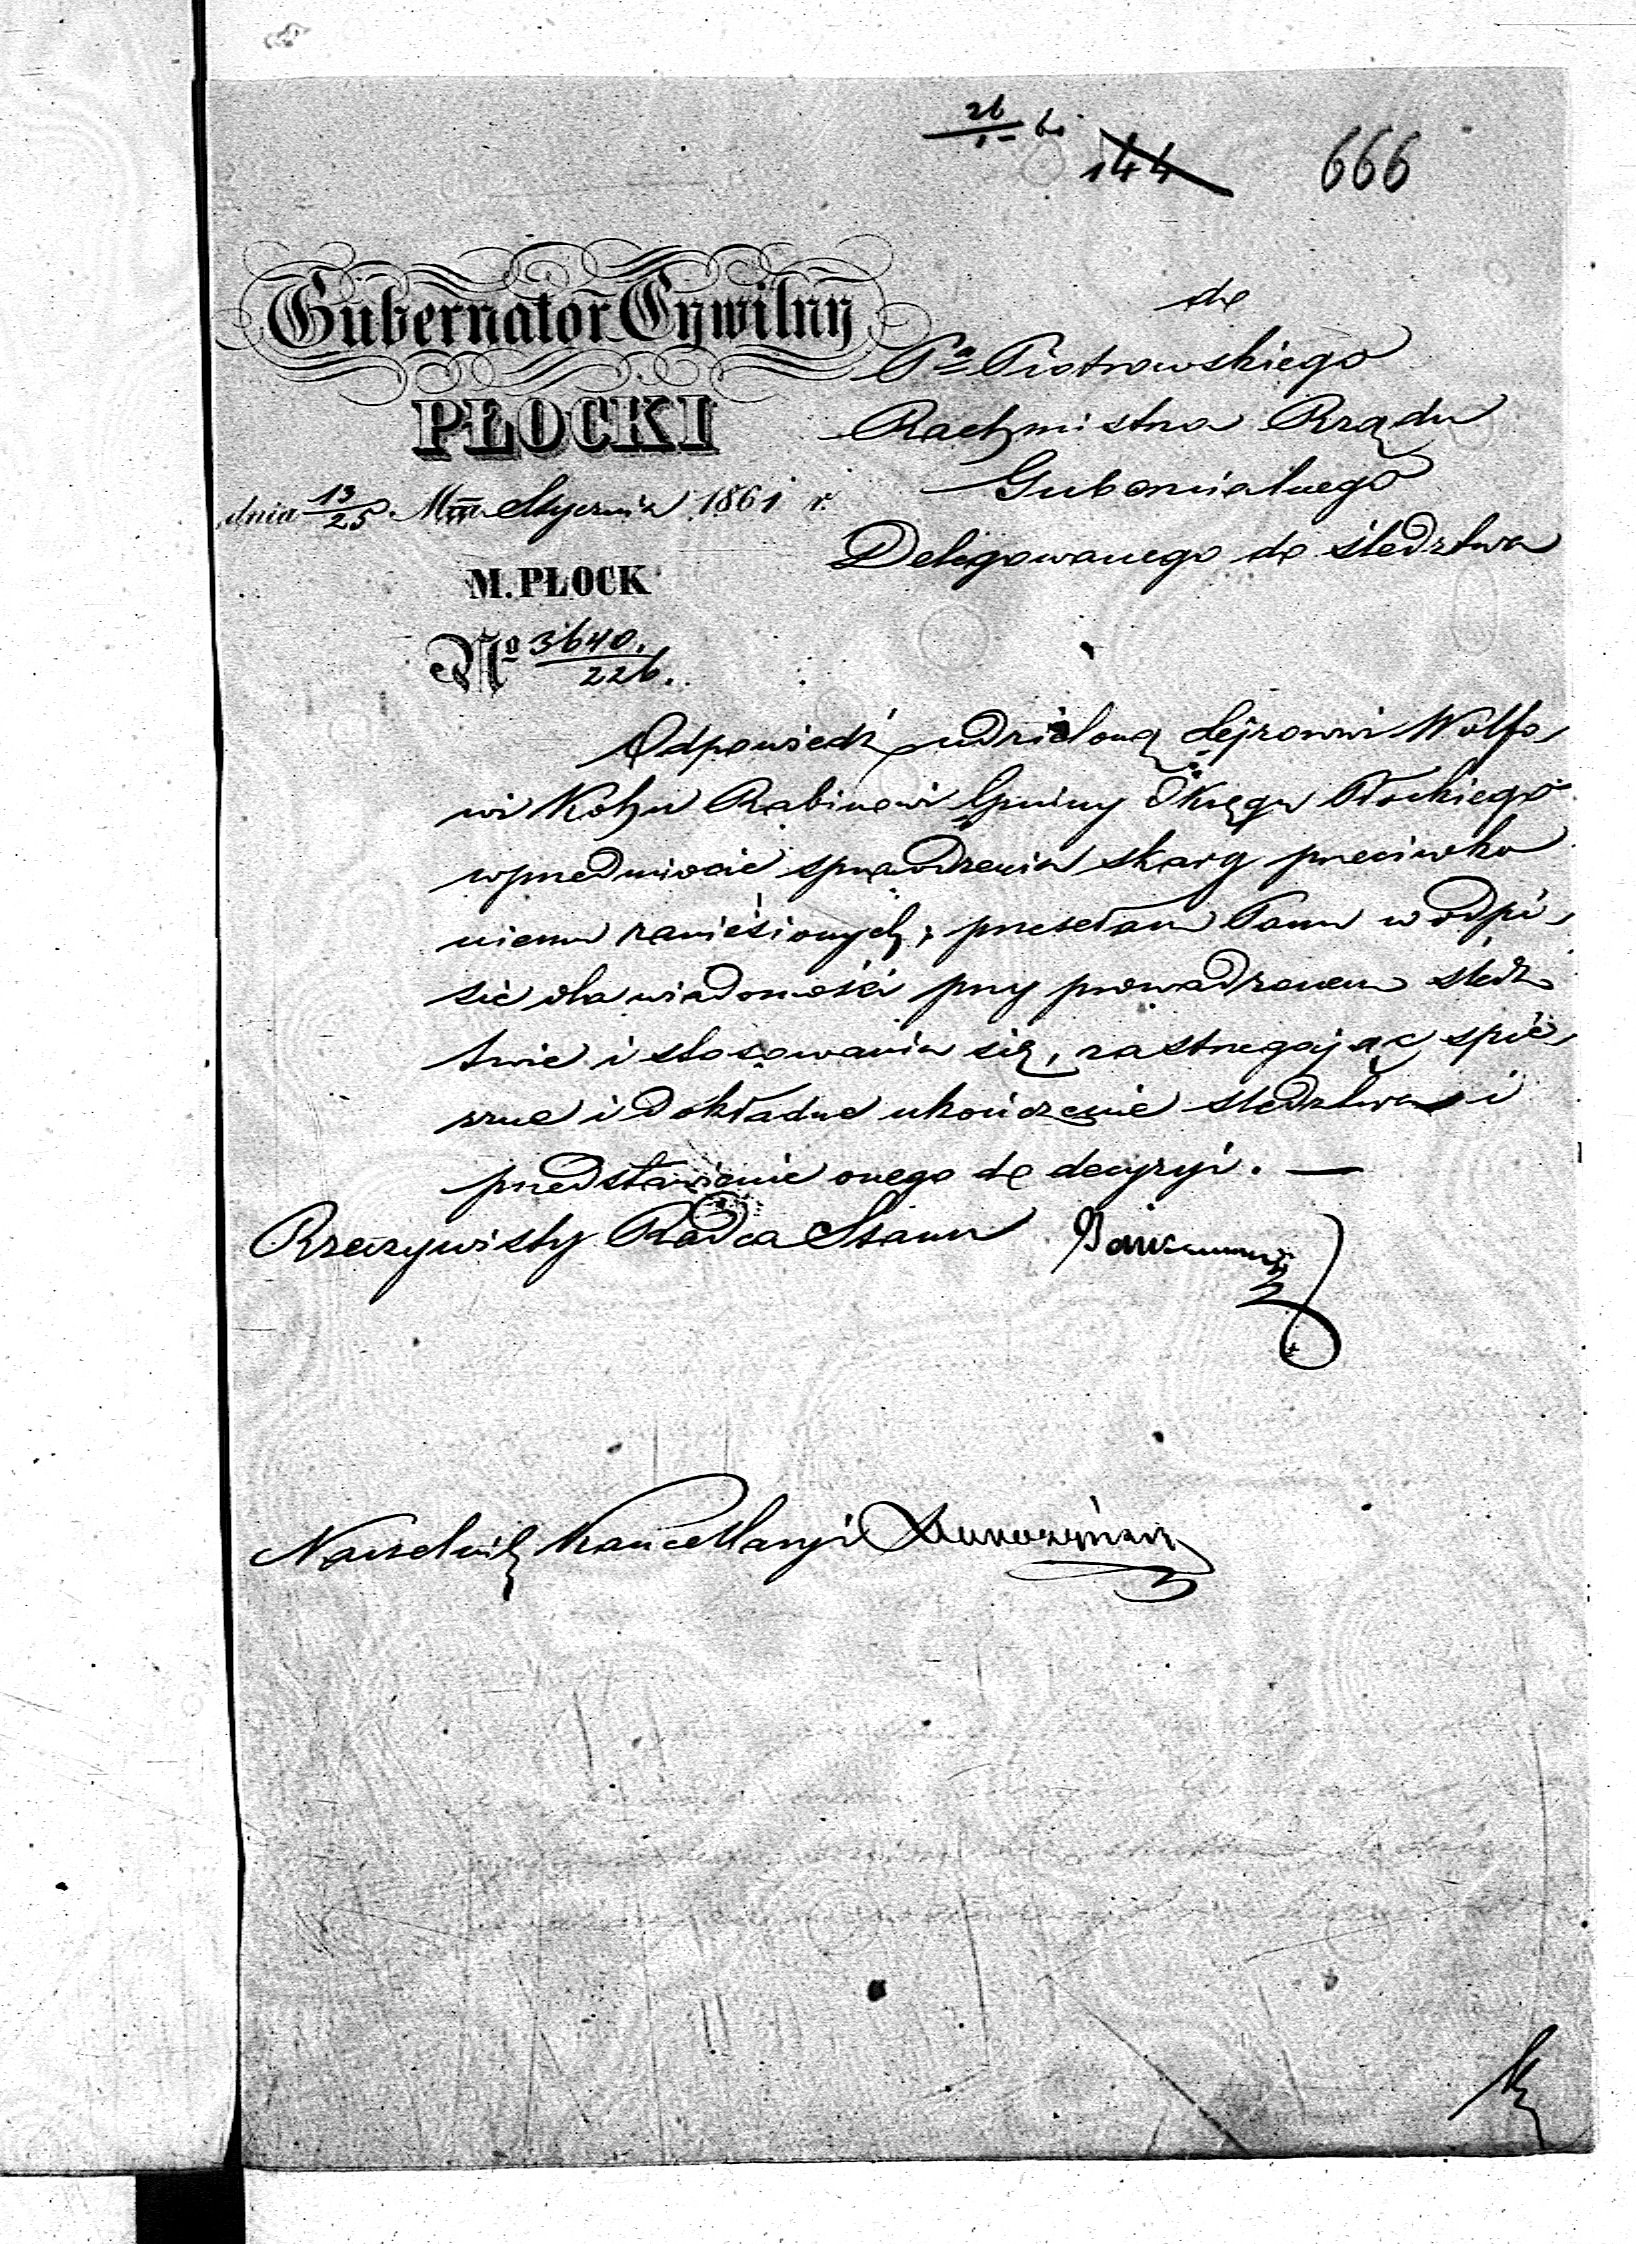 26/1 61
144 666
Gubernator Cywilny
PŁOCKI
dnia 13/25 Mca Stycznia 1861 r.
M. PŁOCK
No 3640./226.
do
Pa Piotrowskiego
Rachmistrza Rządu
Gubernialnego
Delegowanego do śledztwa
Odpowiedź udzieloną Lejzrowi Wolfo,
wi Kohn Rabinowi Gminy Okręgu Płockiego
w przedmiocie sprawdzenia skarg przeciwko
niemu zanieśionych, przesełam Panu w odpi,
sie dla wiadomości przy prowadzonem śledz
twie i stosowania się, zastrzegając spie,
szne i dokładne ukończenie śledztwa i
przedstawienie onego do decyzyi. —
Rzeczywisty Radca Stanu
Naczelnik Kancellaryi